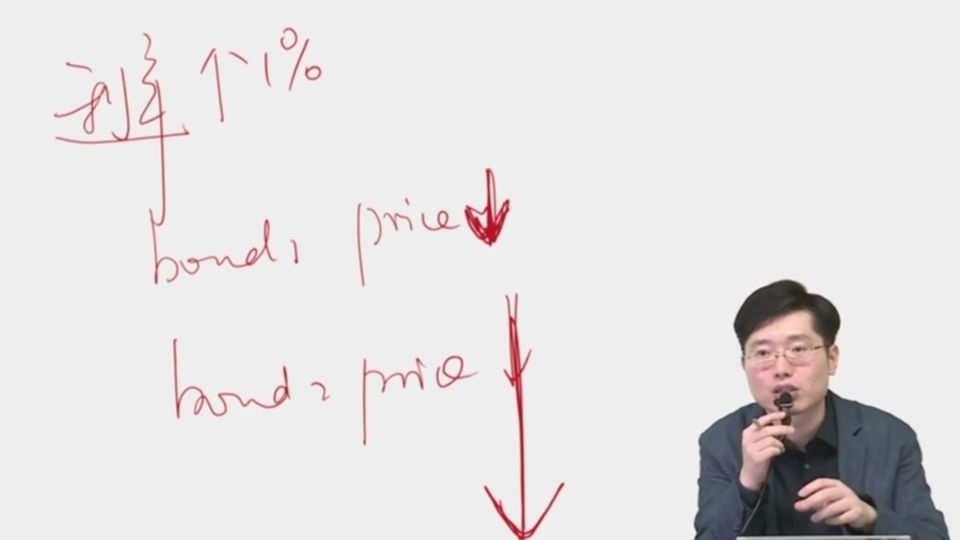 利率↑1%
bond1 price↓
bond2 price↓